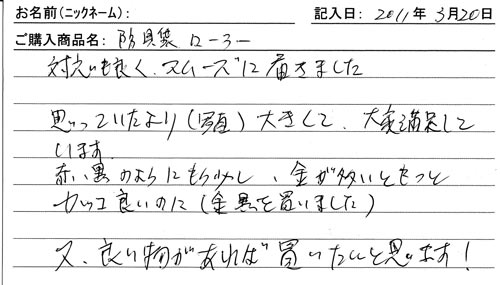 お名前(ニックネーム): 記入日: 2011年 3月20日
ご購入商品名: 防具袋 ローラー
対応も良く、スムーズに着きました
思っていたより(頭)大きくて、大変満足して
います。
赤い黒のようにもう少し、金が多いともっと
カッコ良いのに(金黒を買いました)
又、良い物があれば買いたいと思います!